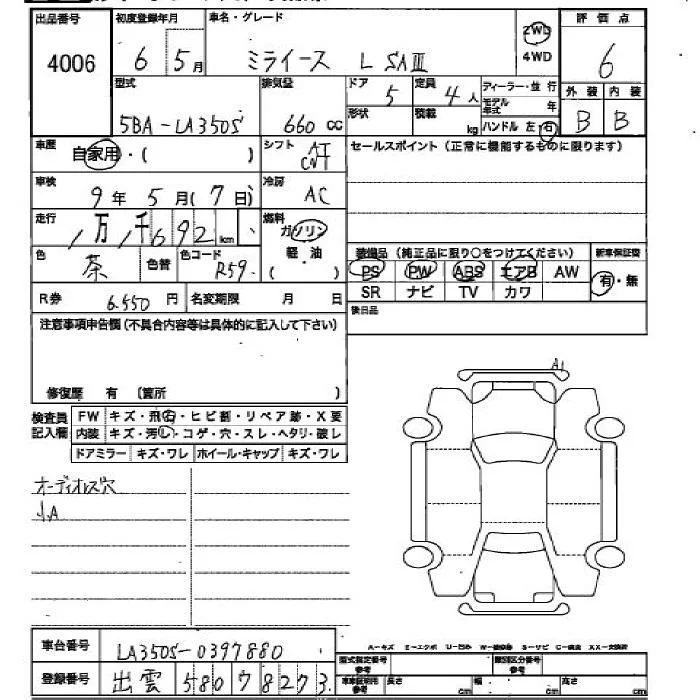 出品番号 4006
初度登録年月 6 5月
車名・グレード ミライース L SAⅢ
2WD 4WD
評価点 6
外装 内装
B B
型式 5BA-LA350S
排気量 660 cc
ドア 5
定員 4人
形状
積載 kg
ディーラー・並行
モデル年式 年
ハンドル 左・右
車歴 自家用・( )
シフト AT CVT
セールスポイント(正常に機能するものに限ります)
車検 9年5月(7日)
冷房 AC
走行 1万1千692km
燃料 ガソリン 軽油 ( )
色 茶 色替
色コード R59
装備品 (純正品に限り○をつけてください) 新車保証書
PS PW ABS エアB AW 有・無
SR ナビ TV カワ
R券 6,550円
名変期限 月 日
後日品
注意事項申告欄(不具合内容等は具体的に記入して下さい)
修復歴 有 〔箇所 〕
検査員記入欄
FW キズ・飛石・ヒビ割・リペア跡・X要
内装 キズ・汚レ・コゲ・穴・スレ・ヘタリ・破レ
ドアミラー キズ・ワレ ホイール・キャップ キズ・ワレ
オーディオレス穴
A1
車台番号 LA350S-0397880
登録番号 出雲 580 78273
A-キズ E-エクボ U-凹み S-サビ C-腐食 XX-交換済
型式指定番号 参考
類別区分番号 参考
長さ cm 幅 cm 高さ cm